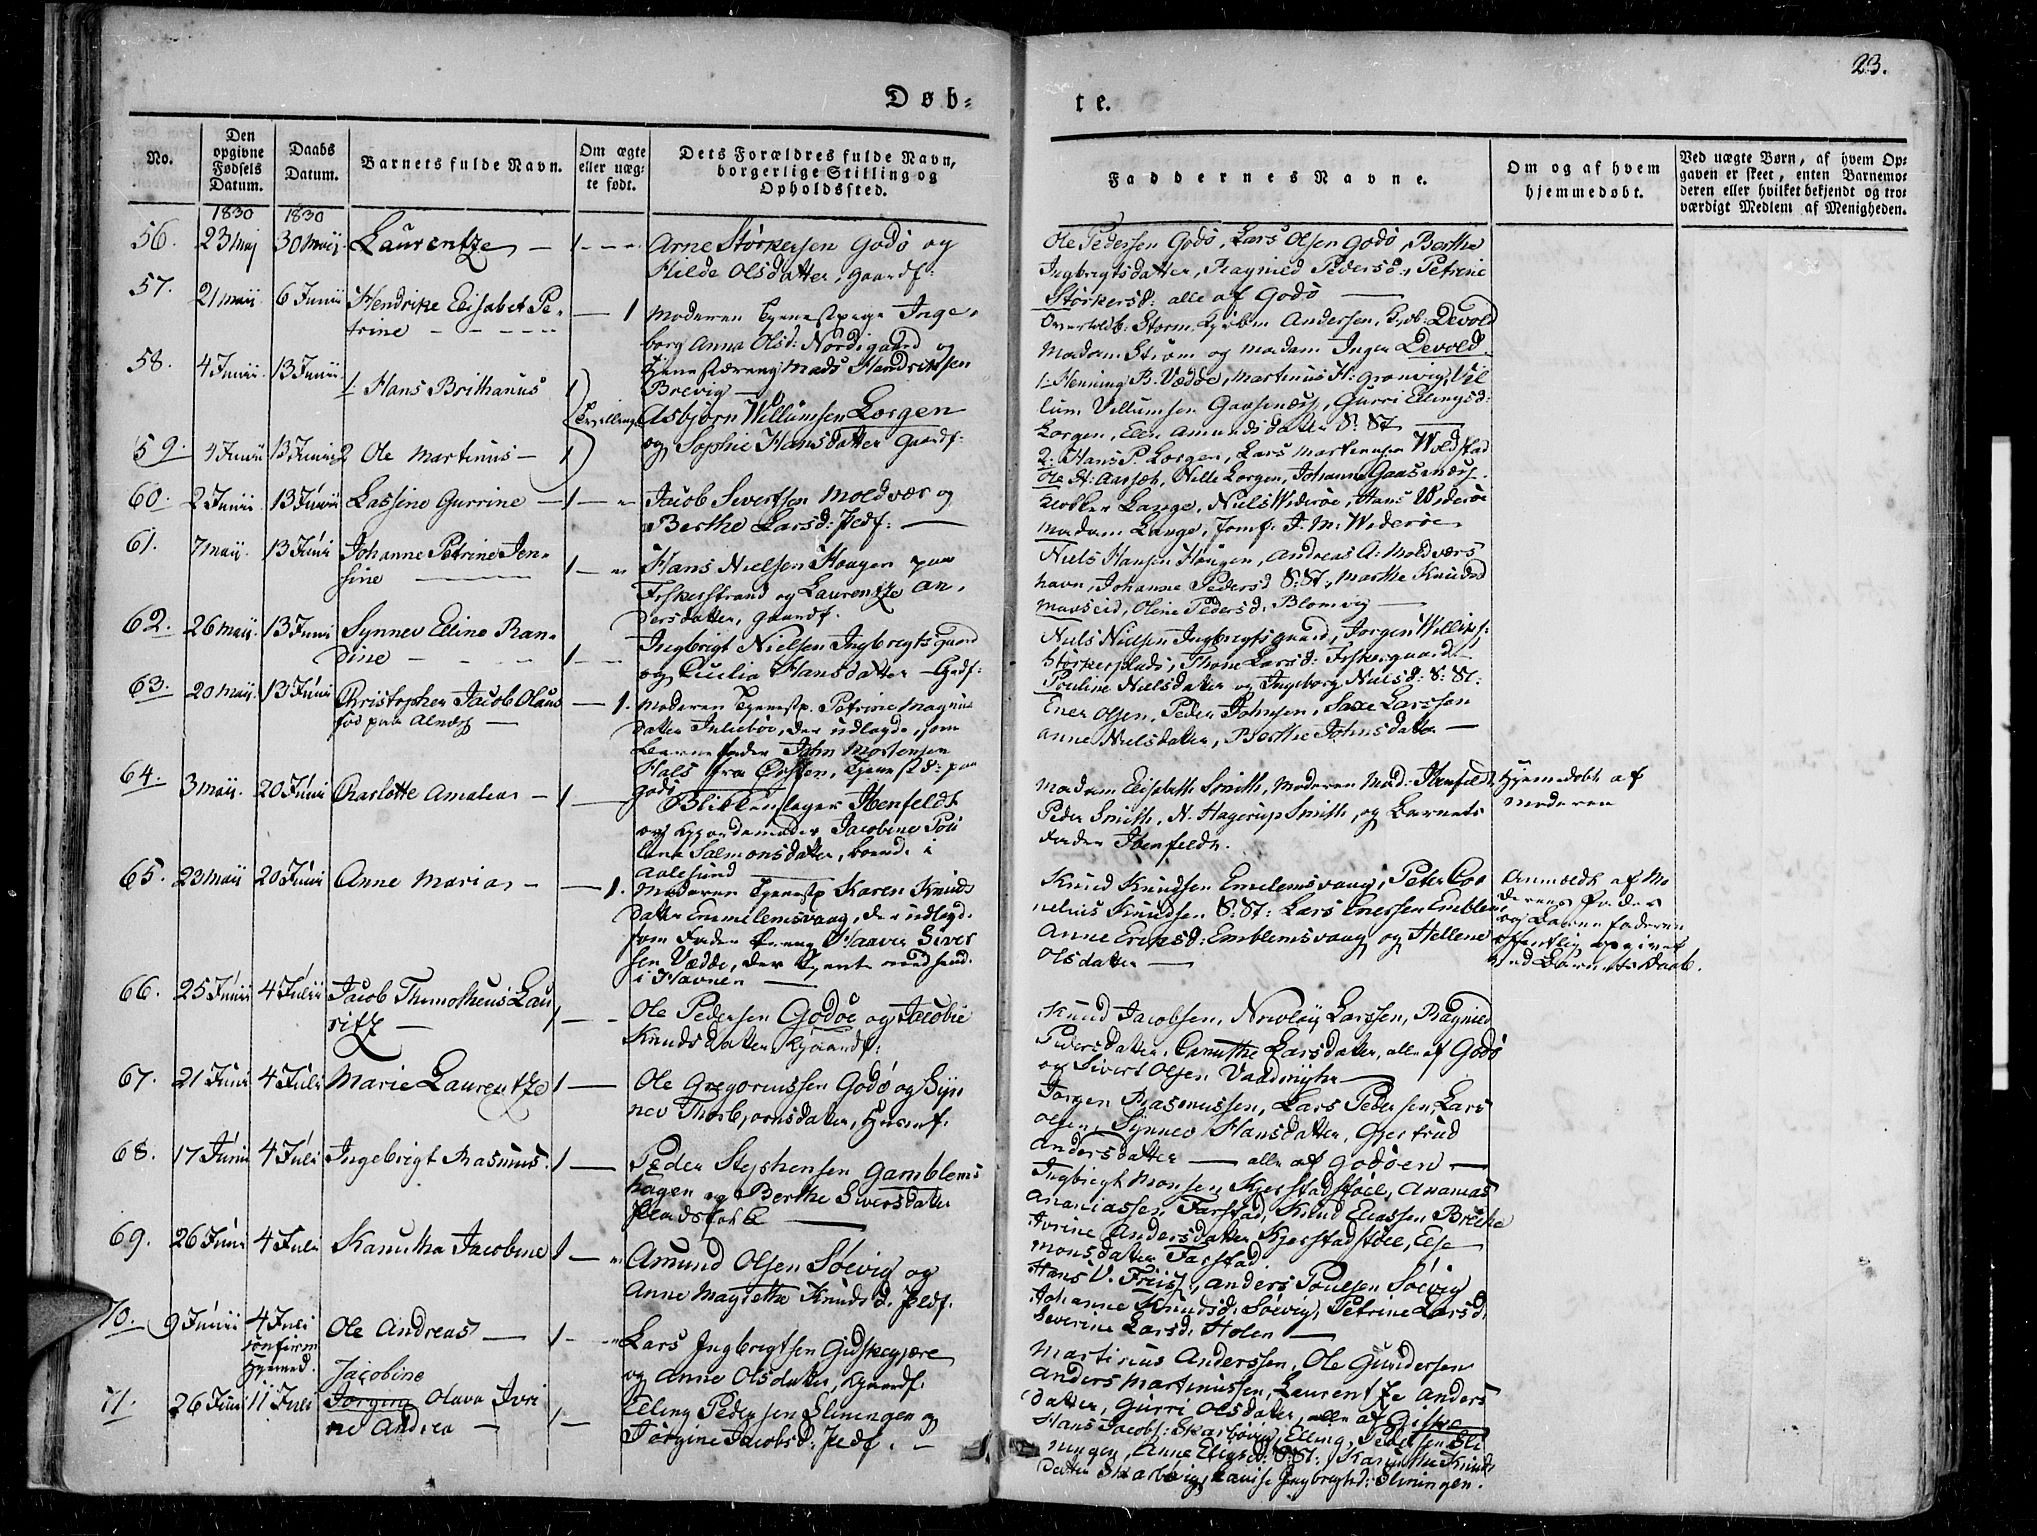 23.
Døb-
te.
No.
Den opgivne Fødsels Datum.
Daabs Datum.
Barnets fulde Navn.
Om ægte eller uægte født.
Dets Forældres fulde Navn, borgerlige Stilling og Opholdssted.
Faddernes Navne.
Om og af hvem hjemmedøbt.
Ved uægte Børn, af hvem Op-
gaven er skeet, enten Barnemo-
deren eller hvilket bekjendt og tro-
værdigt Medlem af Menigheden.
1830 1830
56. 23 Maj 30 Maij Laurentze — 1 - - -
Arne Störkersen Godö og
Hilde Olsdatter, gaardf:
Ole Pedersen Godö, Lars Olsen Godö, Berthe
Ingbrigtsdatter, Ragnild Pedersd:, Petrine
Störkersd: alle af Godö —
57. 21 Maii 6 Junii Hendrike Elisabet Pe-
trine - - - - — 1
Moderen Tjenestpige Inge-
borg Anna Olsd: Nordigaard og
Mads Hendriksen
Brevig —
Storm, Andersen, Devold
Madam Ström og Madam Inger Devold.
58. 4 Junii 13 Junii 1. Hans Brithanus 1
Tvillinger
Asbjörn Willumsen Lorgen
og Sophie Hansdatter Gaardf:
1. Henning B. Vædde, Martinus H: Grönvig, Vil
lum Villumsen Gaasenæs, Gurri Ellingsd:
Lorgen, Elen Amundsdatter S: St
59. 4 Junii 13 Junii 2 Ole Martinus — 1
2. Hans P. Lorgen, Lars Martinusen Woldstad
Ole H: Aarseth, Nille Lorgen, Johanne Gaasenæs.
60. 2 Junii 13 Junii Lassine Gurrine — 1 — "
Jacob Sivertsen Moldvær og
Berthe Larsd: Pedf: —
Klokker Lange, Niels Wideröe, Hans Wideröe
Madam Lange, Jomf: J. M: Wideröe
61. 7 Maii 13 Juni Johanne Petrine Jen-
sine — 1 — "
Hans Nielsen Hougen paa
Fiskerstrand og Laurentze An-
dersdatter, gaardf.
Niels Hansen Hougen, Andreas A: Moldværs
havn, Johanne Pedersd S: St, Marthe Knudsd
Mauseid, Oline Pedersd: Blomvig —
62. 26 Maii 13 Juni Synnev Elline Ran-
dine — 1 — -
Ingbrigt Nielsen Ingbregtsgaard
og Cicilia Hansdatter — Grdf:
Niels Nielsen Ingbregtsgaard, Jörgen Willies:
Störkersplads, Thone Larsd: Fiskergaard
Pouline Nielsdatter og Ingeborg Nielsd: S: St.
63. 20 Maii 13 Juni Christopher Jacob Olaus
fød paa Alnæs — — 1.
Moderen Tjenestp. Petrine Magnus
datter Juliebøe, der udlagde, som
Barnefader John Mortensen
Hals fra Örsten, Tjenestd: paa
Godö
Ener Olsen, Peder Johnsen, Saxe Larssen
Anne Nielsdatter, Berthe Johnsdatter —
64. 3 Maii. 20 Juni Charlotte Amalea — 1 —
Blikkenslager Ibenfeldt
og Egtemoder Jacobine Pou
line Salmonsdatter, boende i
Aalesund
Madam Elisabeth Smith, Moderen Mad: Ibenfeldt
Peder Smith, N. Hagerup Smith, og Barnets
Fader Ibenfeldt.
Hjemedöbt af
Moderen
65. 23 Maii 20 Juni Anne Maria - — 1.
Moderen Tjenestp Karen Knuds
datter Emmelemsvaag, der udlagde
som Fader Haaver Siver
sen Vædde, der Tjente
i Havnen —
Knud Knudsen Emelemsvaag, Peter Cor
nelius Knudsen S: St: Lars Enersen Emblem
Anne Eriksd: Emblemsvaag og Hellene
Olsdatter —
Anmeldt af Mo
derens Fader
og Barnefaderen
offentlig opgivet
ved Barnets Daab.
66. 25 Junii 4 Julii Jacob Thimotheus Lau
ritz — 1 — -
Ole Pedersen Godöe og Jacobie
Knudsdatter, Gaardf:
Knud Jacobsen, Nicolay Larssen, Ragnild
Pedersdatter, Canuthe Larsdatter, alle af Godö
og Sivert Olsen Vaadmyhr —
67. 21 Juni 4 Juli Marie Laurentze 1 —
Ole Gregoriussen Godö og Syn
nev Thorbjörnsdatter, Husmf.
Jörgen Rasmussen, Lars Pedersen, Lars
Olsen, Synnev Hansdatter, Gjertrud
Andersdatter — alle af Godöen —
68. 17 Juni 4 Juli Ingebrigt Rasmus. 1 —
Peder Stephensen Gamblems
hagen og Berthe Siversdatter
Pladsfolk —
Ingbrigt Monsen Kjerstadstöel, Ananias
Ananiassen Farstad, Knud Eliassen Brekke
Ivrine Andersdatter Kjerstadstöel, Else
Monsdatter Farstad
69. 26 Juni 4 Juli Kanutha Jacobine 1 — "
Amund Olsen Söevig og
Anne Magrethe Knudsd. Pedf.
Hans V. Friis, Anders Poulsen Söevig
Johanne Knudsd: Söevig, Petrine Larsd,
Severine Larsd: Holen —
70. 9 Junii 4 Juli Ole Andreas — 1 - "
confirm
Hjemed.
Lars Ingbrigtsen Gidskegjære
og Anne Olsdatter, Gaardf.
Martinius Anderssen, Ole Gundersen
Anders Martinussen, Laurentze Anders
datter, Gurri Olsdatter, alle af Giske
71. 26 Juni 11 Juli Jacobine
Jorgine Olava Ivri
ne Andrea — 1 —
Elling Pedersen Sliningen og
Jörgine Jacobsd: Pedf. —
Hans Jacobs: Skarböevig, Elling Pedersen Sli
ningen, Anne Ellingsd: S: St: Kanuthe Knuds
datter Skarbövig, Lovise Ingbrigtsd: Sliningen.